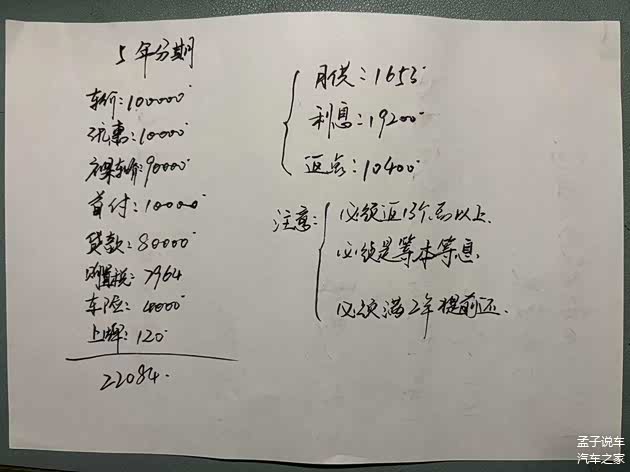 5年分期
车价:100000
优惠:10000
裸车价:90000
首付:10000
贷款:80000
购置税:7964
车险:4000
上牌:120
22084.
月供:1653
利息:19200
返点:10400
注意:
必须返13个点以上.
必须是等本等息.
必须满2年提前还.
孟子说车
汽车之家